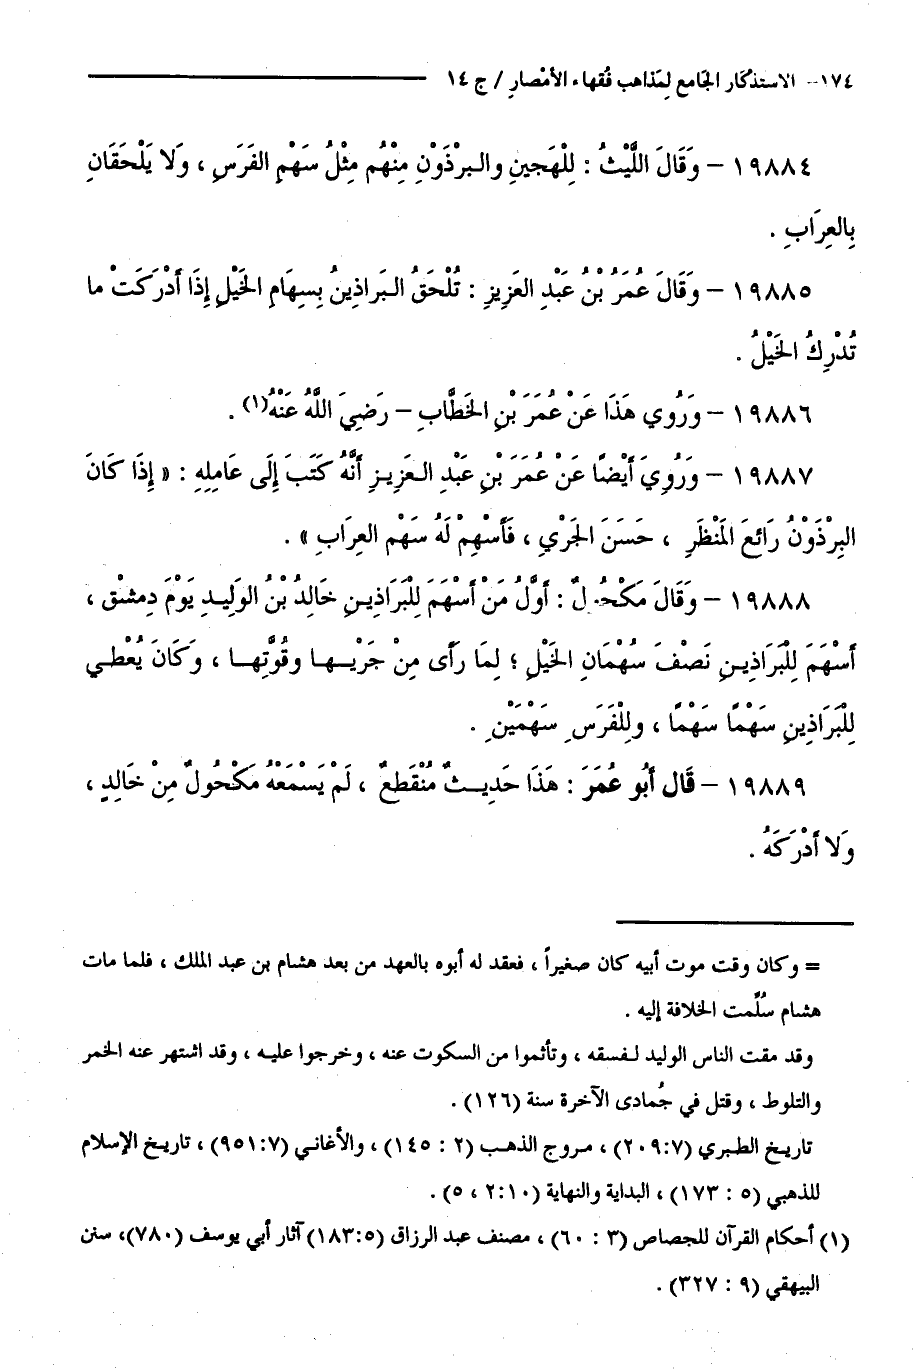 ١٧٤- الاستذكار الجَامع لِمَذاهب فُقهاء الأمْصارِ / ج ١٤
١٩٨٨٤ – وَقَالَ اللَّيْثُ : لِلْهَجِينِ والبرْذَوْنِ مِنْهُم مِثْلُ سَهْمِ الفَرَسِ ، وَلا يَلْحَقَانِ
بِالعِرَابِ .
١٩٨٨٥ – وَقَالَ عُمَرُ بْنُ عَبْدِ العَزِيزِ : تُلْحَقُ البَراذِينُ بِسِهَامِ الخَيْلِ إِذَا أَدْرَكَتْ ما
تُدْرِكُ الخَيْلُ .
١٩٨٨٦ – وَرُوِي هَذَا عَنْ عُمَرَ بْنِ الخَطَّابِ – رَضِيَ اللَّهُ عَنْهُ(١) .
١٩٨٨٧ – وَرُوِيَ أَيْضًا عَنْ عُمَرَ بْنِ عَبْدِ العَزِيزِ أَنَّهُ كَتَبَ إِلَى عَامِلِهِ : « إِذَا كَانَ
البِرْذَوْنُ رَائِعَ المَنْظَرِ ، حَسَنَ الجَرْيِ ، فَأَسْهِمْ لَهُ سَهْم العِرَابِ » .
١٩٨٨٨ – وَقَالَ مَكْحُولٌ : أَوَّلُ مَنْ أَسْهَمَ لِلْبَرَاذِينِ خَالِدُ بْنُ الوَلِيدِ يَوْمَ دِمشْق ،
أَسْهَمَ لِلْبَرَاذِينِ نَصْفَ سُهْمَانِ الخَيْلِ ؛ لِمَا رَأَى مِنْ جَرْيِها وقُوَّتِها ، وَكَانَ يُعْطِي
لِلْبَرَاذِينِ سَهْمًا سَهْمًا ، وللْفَرَسِ سَهْمَيْنِ .
١٩٨٨٩ – قَال أَبُو عُمَرَ : هَذَا حَدِيثٌ مُنْقَطعٌ ، لَمْ يَسْمَعْهُ مَكْحُولٌ مِنْ خَالِدٍ ،
وَلا أَدْرَكَهُ .
= وكان وقت موت أبيه كان صغيراً ، فعقد له أبوه بالعهد من بعد هشام بن عبد الملك ، فلما مات
هشام سُلِّمت الخلافة إليه .
وقد مقت الناس الوليد لفسقه ، وتأثموا من السكوت عنه ، وخرجوا عليه ، وقد اشتهر عنه الخمر
والتلوط ، وقتل في جُمادى الآخرة سنة (١٢٦) .
تاريخ الطبري (٢٠٩:٧) ، مروج الذهب (٢ : ١٤٥) ، والأغاني (٩٥١:٧) ، تاريخ الإسلام
للذهبي (٥ : ١٧٣) ، البداية والنهاية (٢:١٠ ، ٥) .
(١) أحكام القرآن للجصاص (٣ : ٦٠) ، مصنف عبد الرزاق (١٨٣:٥) آثار أبي يوسف (٧٨٠)، سنن
البيهقي (٩ : ٣٢٧) .